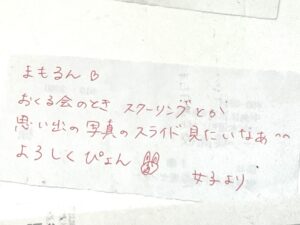 まもるん♡
おくる会のとき スクーリングとか
思い出の写真のスライド見たいなあ^^
よろしくぴょん
女子より